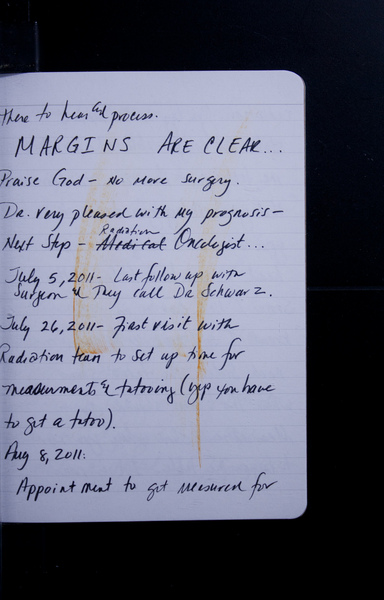 there to hear and process.
MARGINS ARE CLEAR...
Praise God - No more surgery.
Dr. very pleased with my prognosis -
Radiation
Next Step - Medical Oncologist...
July 5, 2011 - Last follow up with
Surgeon & They call Dr. Schwarz.
July 26, 2011 - First visit with
Radiation team to set up time for
measurments & tatooing (yep you have
to get a tatoo).
Aug 8, 2011:
Appointment to get measured for